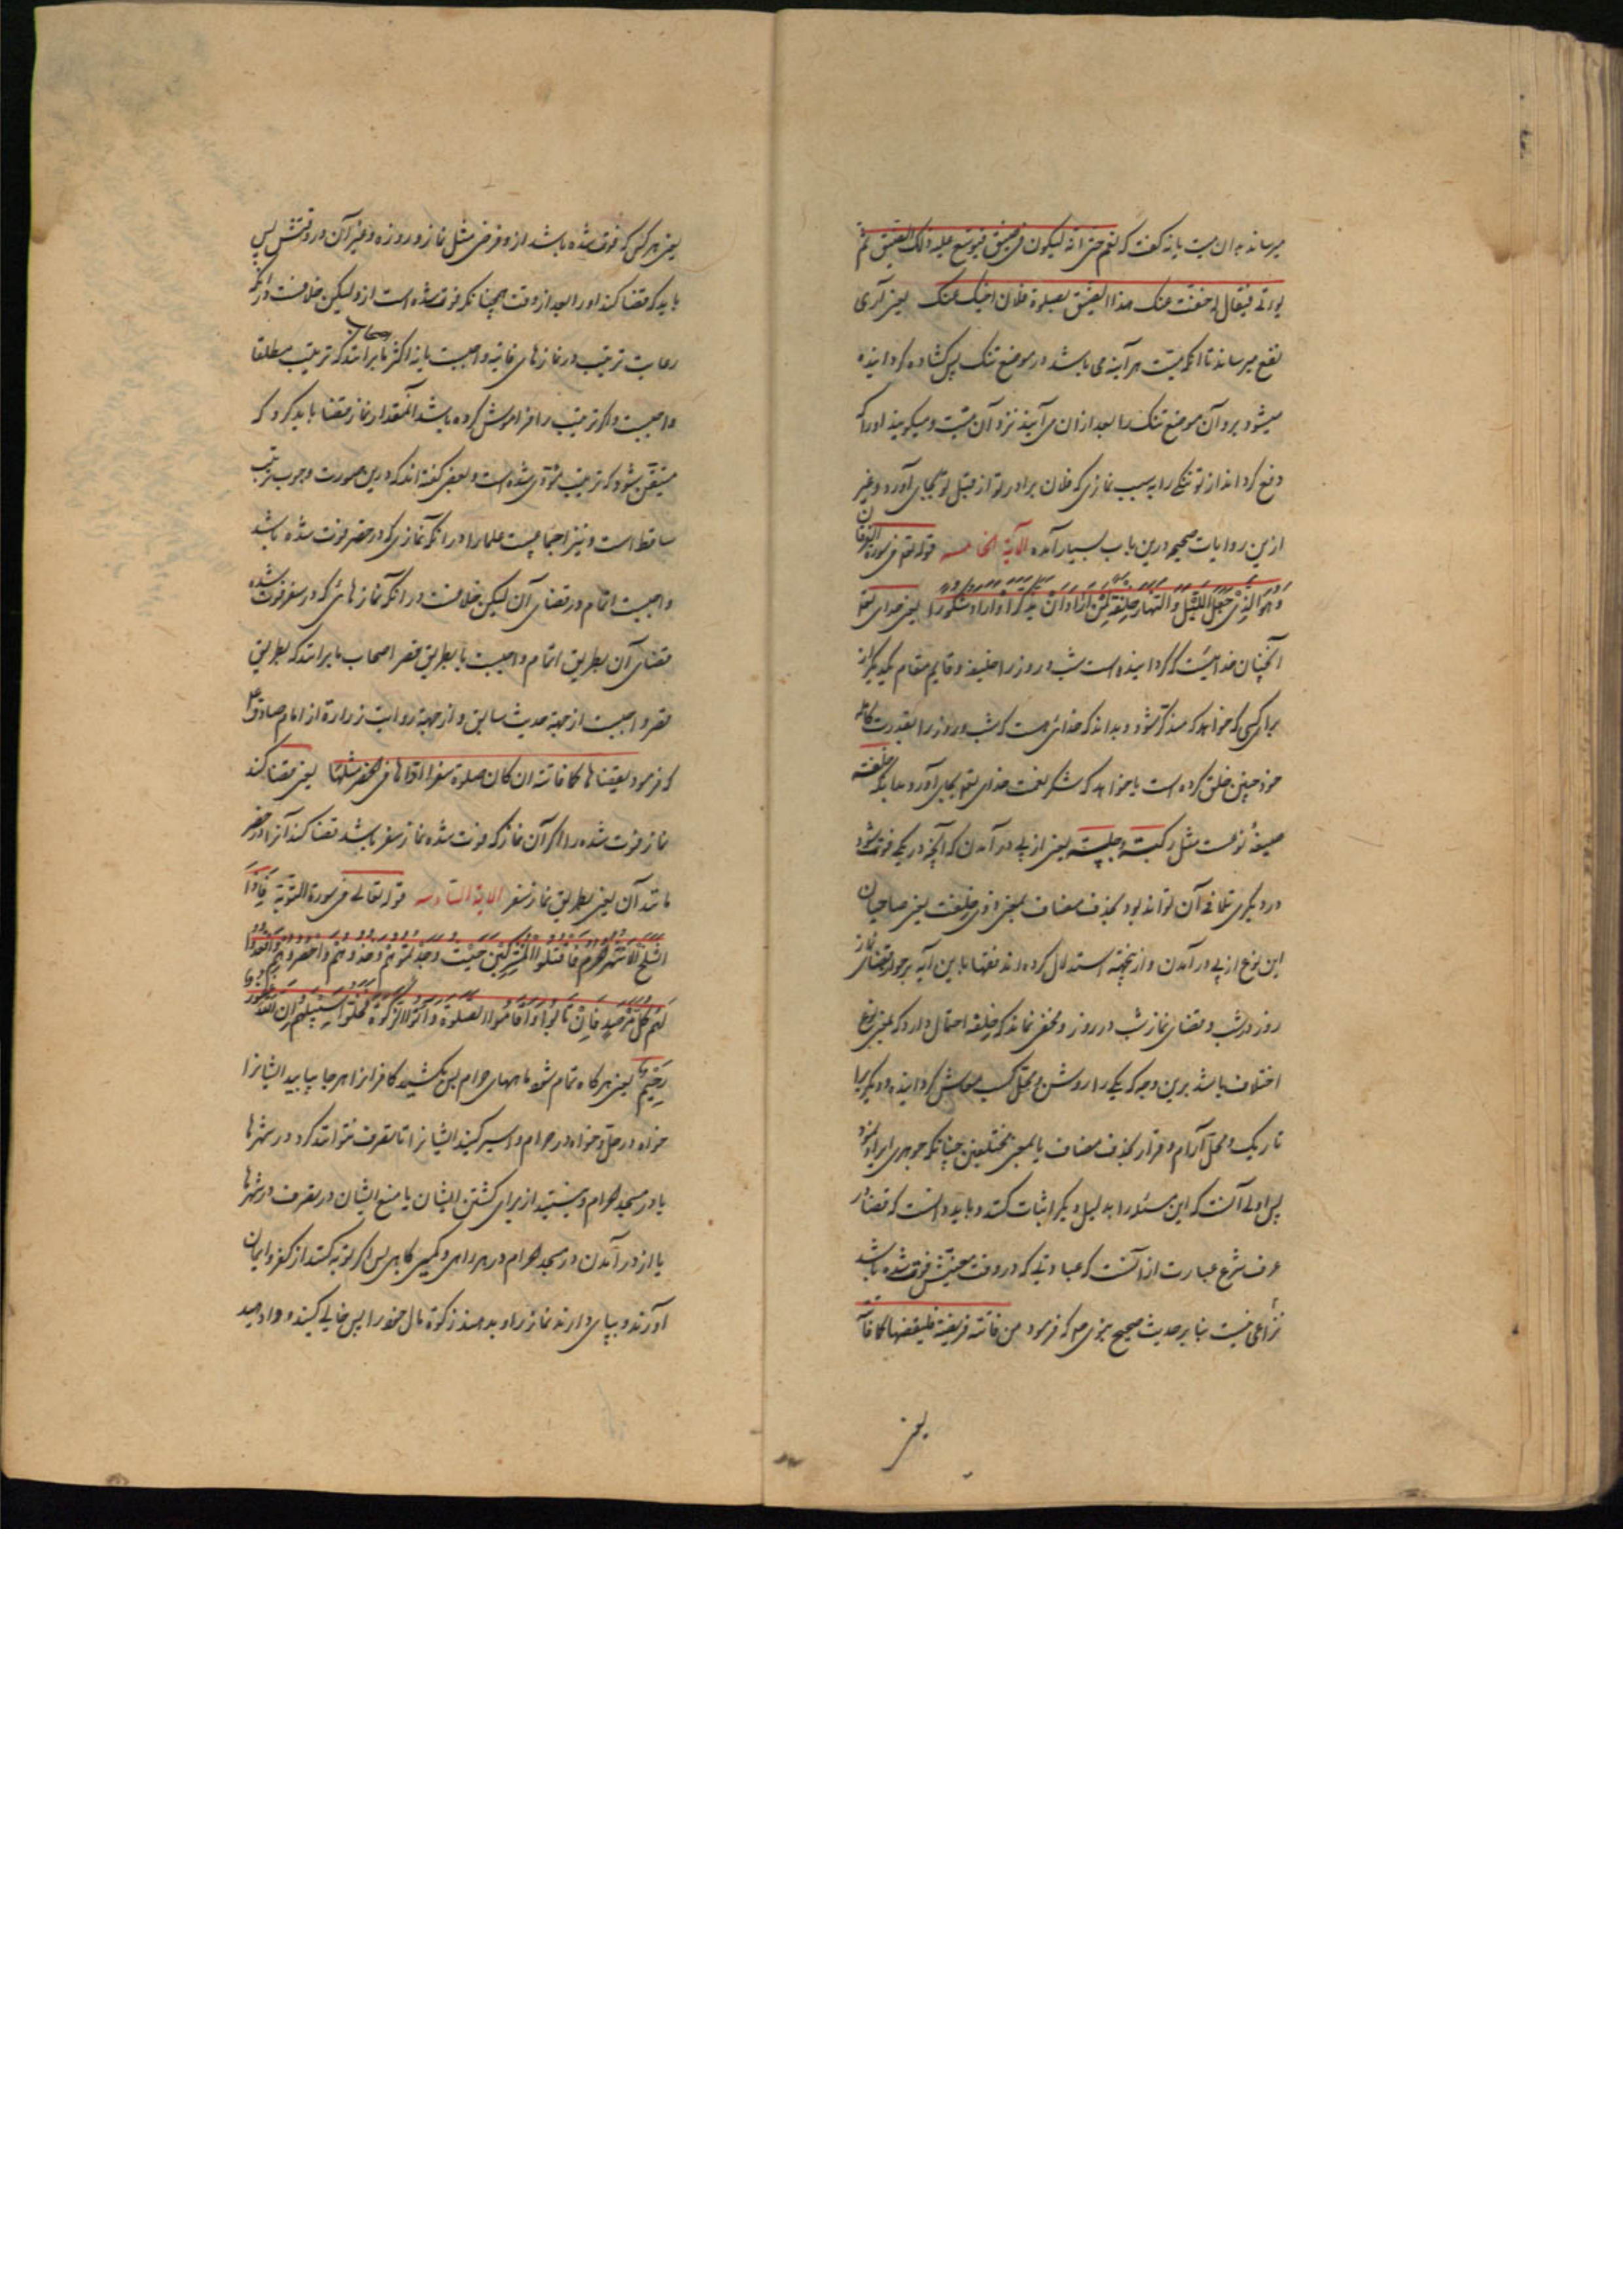 میرساند بدان میت یا نه گفت که نعم حتی انه لیکون فی ضیق فیوسع علیه ذلک الضیق ثم
یوتی فیقال له خفف عنک هذا الضیق بصلوة فلان اخیک عنک یعنی آری
نفع میرساند تا آنکه میت هر آینه می باشد در موضع تنک پس کشاده کردانیده
میشود برو آن موضع تنک را بعد از ان می آیند نزد آن میت و میکویند او را که
دفع کرده اند از تو تنکی را به سبب نمازی که فلان برادر تو از قبل تو بجای آورد و غیر
ازین روایات صحیحه درین باب بسیار آمده الآیة الخامسه قوله تعالی فی سورة الفرقان
وَهُوَ الَّذِی جَعَلَ اللَّیْلَ وَالنَّهَارَ خِلْفَةً لِّمَنْ أَرَادَ أَنْ یَذَّکَّرَ أَوْ أَرَادَ شُکُورًا یعنی خدای تعالی
آنچنان خدائیست که کردانیده است شب و روز را خلیفه و قایم مقام یکدیکر از
برای کسی که خواهد که متذکر شود و بداند که خدائی هست که شب و روز را بقدرت کامله
خود چنین خلق کرده است یا خواهد که شکر نعمت خدای تعالی بجای آورد بدانکه خلفة
صیغهٔ نوعست مثل رکبة و جلسة یعنی از پی در آمدن که آنچه در یکی فوت شود
در دیکری تلافی آن تواند بود بحذف مضاف بمعنی ذوی خلفت یعنی صاحبان
این نوع از پی در آمدن و ازینجهته استدلال کرده اند فقها باین آیه بر جواز قضای نماز
روز در شب و قضای نماز شب در روز و مخفی نماند که خلفة احتمال دارد که بمعنی نوع
اختلاف باشد برین وجه که یکی را روشن و محل کسب معاش کردانیده و دیکری را
تاریک و محل آرام و قرار بحذف مضاف یا بمعنی مختلفین چنانکه جوهری ایراد نموده
پس اولی آنست که این مسئله را بدلیل دیکر اثبات کنند و باید دانست که قضا در
عرف شرع عبارت از آنست که عبادتی که در وقت معینش فوت شده باشد
نزاعی نیست بنا بر حدیث صحیح نبوی ص که فرمود من فاتته فریضة فلیقضها کما فاتته
یعنی
یعنی هر کس که فوت شده باشد ازو فرضی مثل نماز و روزه و غیر آن در وقتش پس
باید که قضا کند او را بعد از وقت همچنانکه فوت شده است ازو لیکن خلافست در آنکه
رعایت ترتیب در نمازهای فایته واجبست یا نه اکثر اصحاب ما برانند که ترتیب مطلقا
واجبست و اکر ترتیب را فراموش کرده باشد آنمقدار نماز قضا باید کرد که
متیقن شود که ترتیب مؤدی شده است و بعضی کفته اند که درین صورت وجوب ترتیب
ساقط است و نیز اجماعیست علما را در آنکه نمازی که در حضر فوت شده باشد
واجبست اتمام در قضای آن لیکن خلافست در آنکه نمازهائی که در سفر فوت شده
قضای آن بطریق اتمام واجبست یا بطریق قصر اصحاب ما برانند که بطریق
قصر واجبست از جهة حدیث سابق و از جهة روایت زرارة از امام صادق ع
که فرمود یقضاها کما فاتته ان کان صلوة سفر اداها فی الحضر مثلها یعنی قضا کند
نماز فوت شده را اکر آن نماز که فوت شده نماز سفر باشد قضا کند آنرا در حضر
مانند آن یعنی بطریق نماز سفر الآیة السادسه قوله تعالی فی سورة التوبة فَإِذَا
انْسَلَخَ الْأَشْهُرُ الْحُرُمُ فَاقْتُلُوا الْمُشْرِکِینَ حَیْثُ وَجَدْتُمُوهُمْ وَخُذُوهُمْ وَاحْصُرُوهُمْ وَاقْعُدُوا
لَهُمْ کُلَّ مَرْصَدٍ فَإِنْ تَابُوا وَأَقَامُوا الصَّلَوةَ وَآتَوُا الزَّکَوةَ فَخَلُّوا سَبِیلَهُمْ إِنَّ اللَّهَ غَفُورٌ
رَحِیمٌ یعنی هر کاه تمام شود ماههای حرام پس بکشید کافرانرا هر جا بیابید ایشانرا
خواه در حل و خواه در حرام و اسیر کنید ایشانرا تا تصرف نتوانند کرد در شهرها
یا در مسجد الحرام و بنشینید از برای کشتن ایشان یا منع ایشان در تصرف در شهرها
یا از در آمدن در مسجد الحرام در هر راهی و کمین کاهی پس اکر توبه کنند از کفر و ایمان
آورند و بپای دارند نماز را و بدهند زکوة مال خود را پس خالی کنید و وادهید